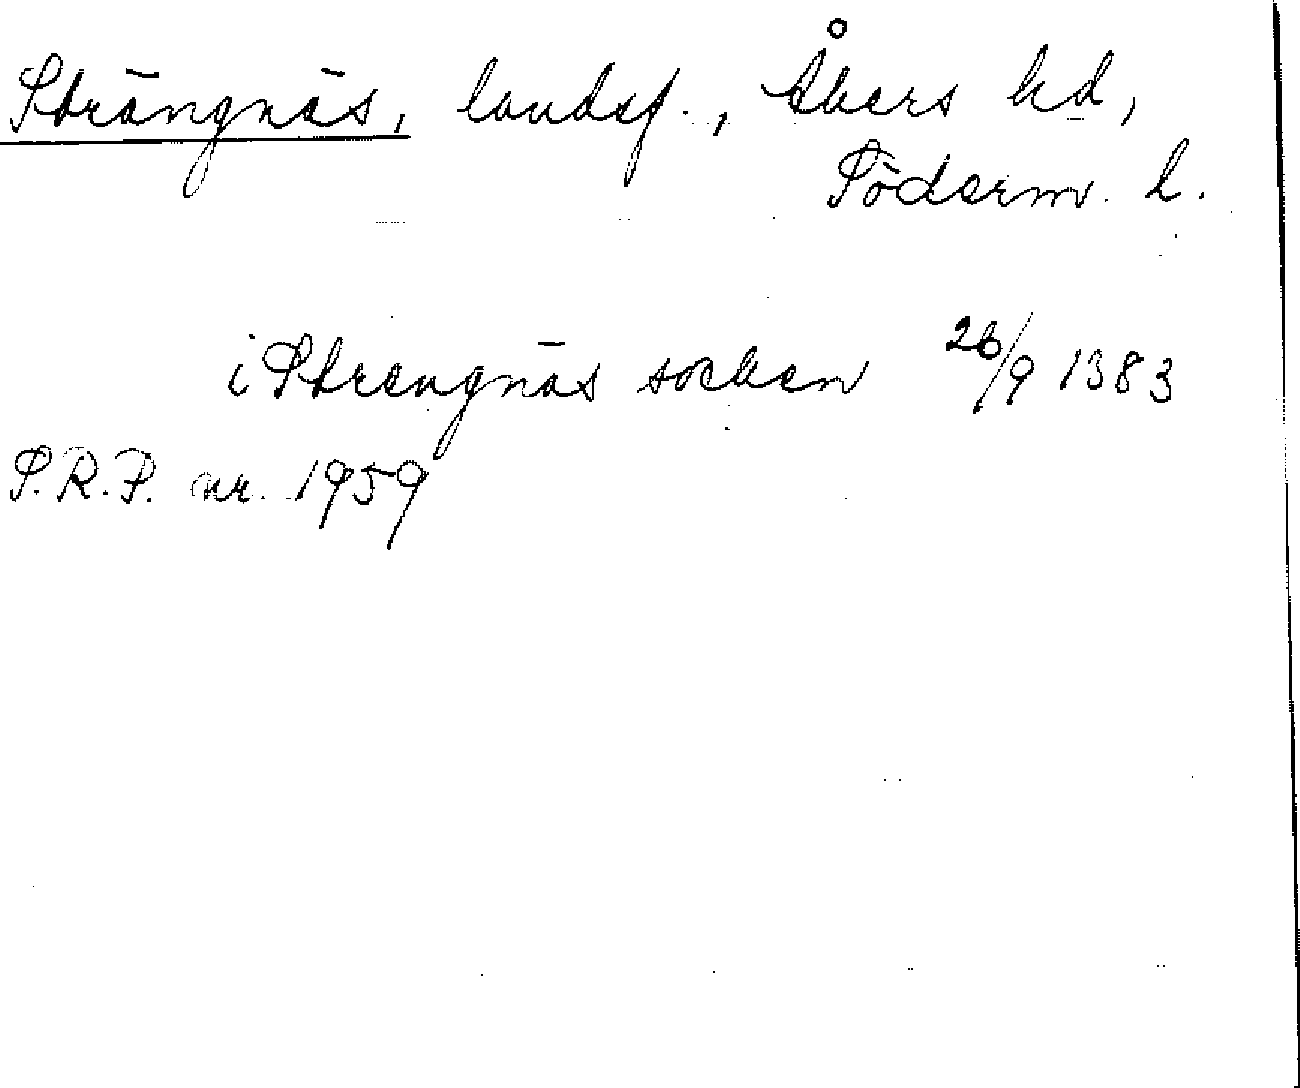 Strängnäs, landsf., Åkers hd,
Söderm. l.
i Strengnäs socken 26/9 1383
S.R.P. nr. 1959